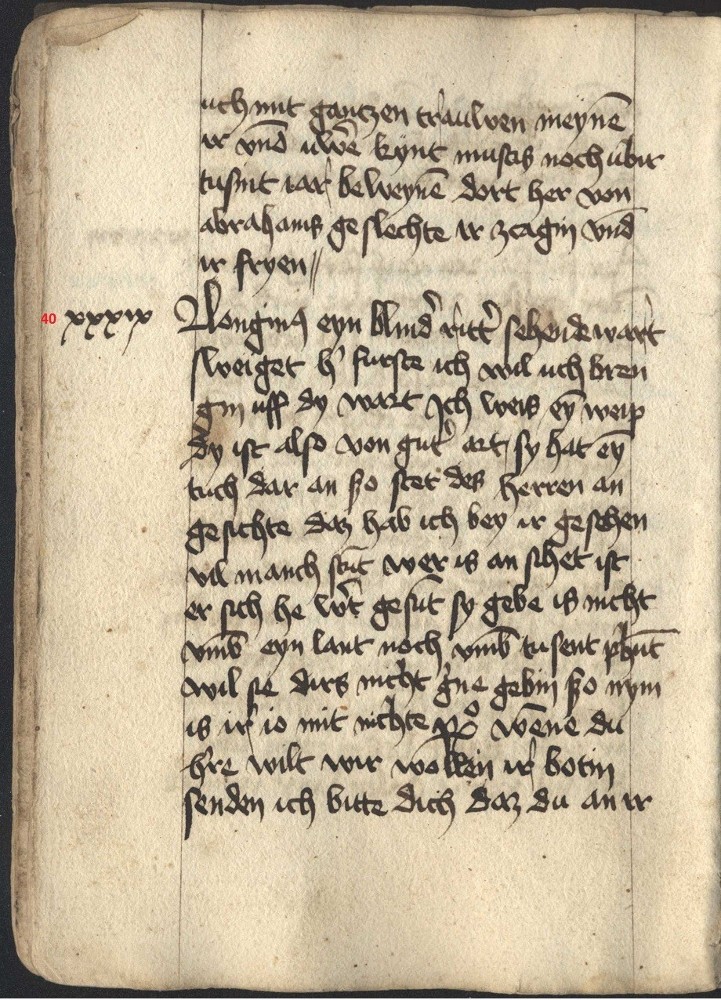 uch mit gantzen trawen meynē
ir vnd uwē kynt musis noch ubir
tusint iar beweynē dort her von
abrahams geslechte ir zcagin vnd
ir fryen
40 xxxix Longin9 eyn blind' ritt' sehende wart
sweiget h' furste ich wil uch bren
gin uff dy wart Ich weis eȳ weip
dy ist also von gut' art sy hat eȳ
tuch dar an szo stet des herren an
gesichte daz hab ich bey ir gesehen
vil manch stūt wer is an sihet ist
er sich he w't gesūt sy gebe is nicht
vmb eyn lant noch vmb tusent phūt
wil sie dirs nicht g'ne gebin szo nym
is ir io mit nichte wēne du
h're wilt wir wollen ir botin
senden ich bitte dich daz du an ir